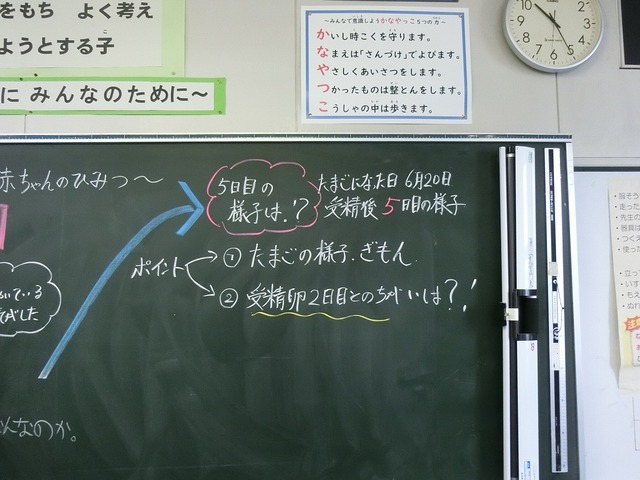 をもち よく考え
ようとする子
に みんなのために～
～みんなで意識しようかなやっこ５つの力～
かいし時こくを守ります。
なまえは「さんづけ」でよびます。
やさしくあいさつをします。
つかったものは整とんをします。
こうしゃの中は歩きます。
赤ちゃんのひみつ～
5日目の
様子は.!?
たまごになった日 6月20日
受精後 5日目の様子
ポイント
① たまごの様子.ぎもん
② 受精卵2日目とのちがいは?!
んなのか。